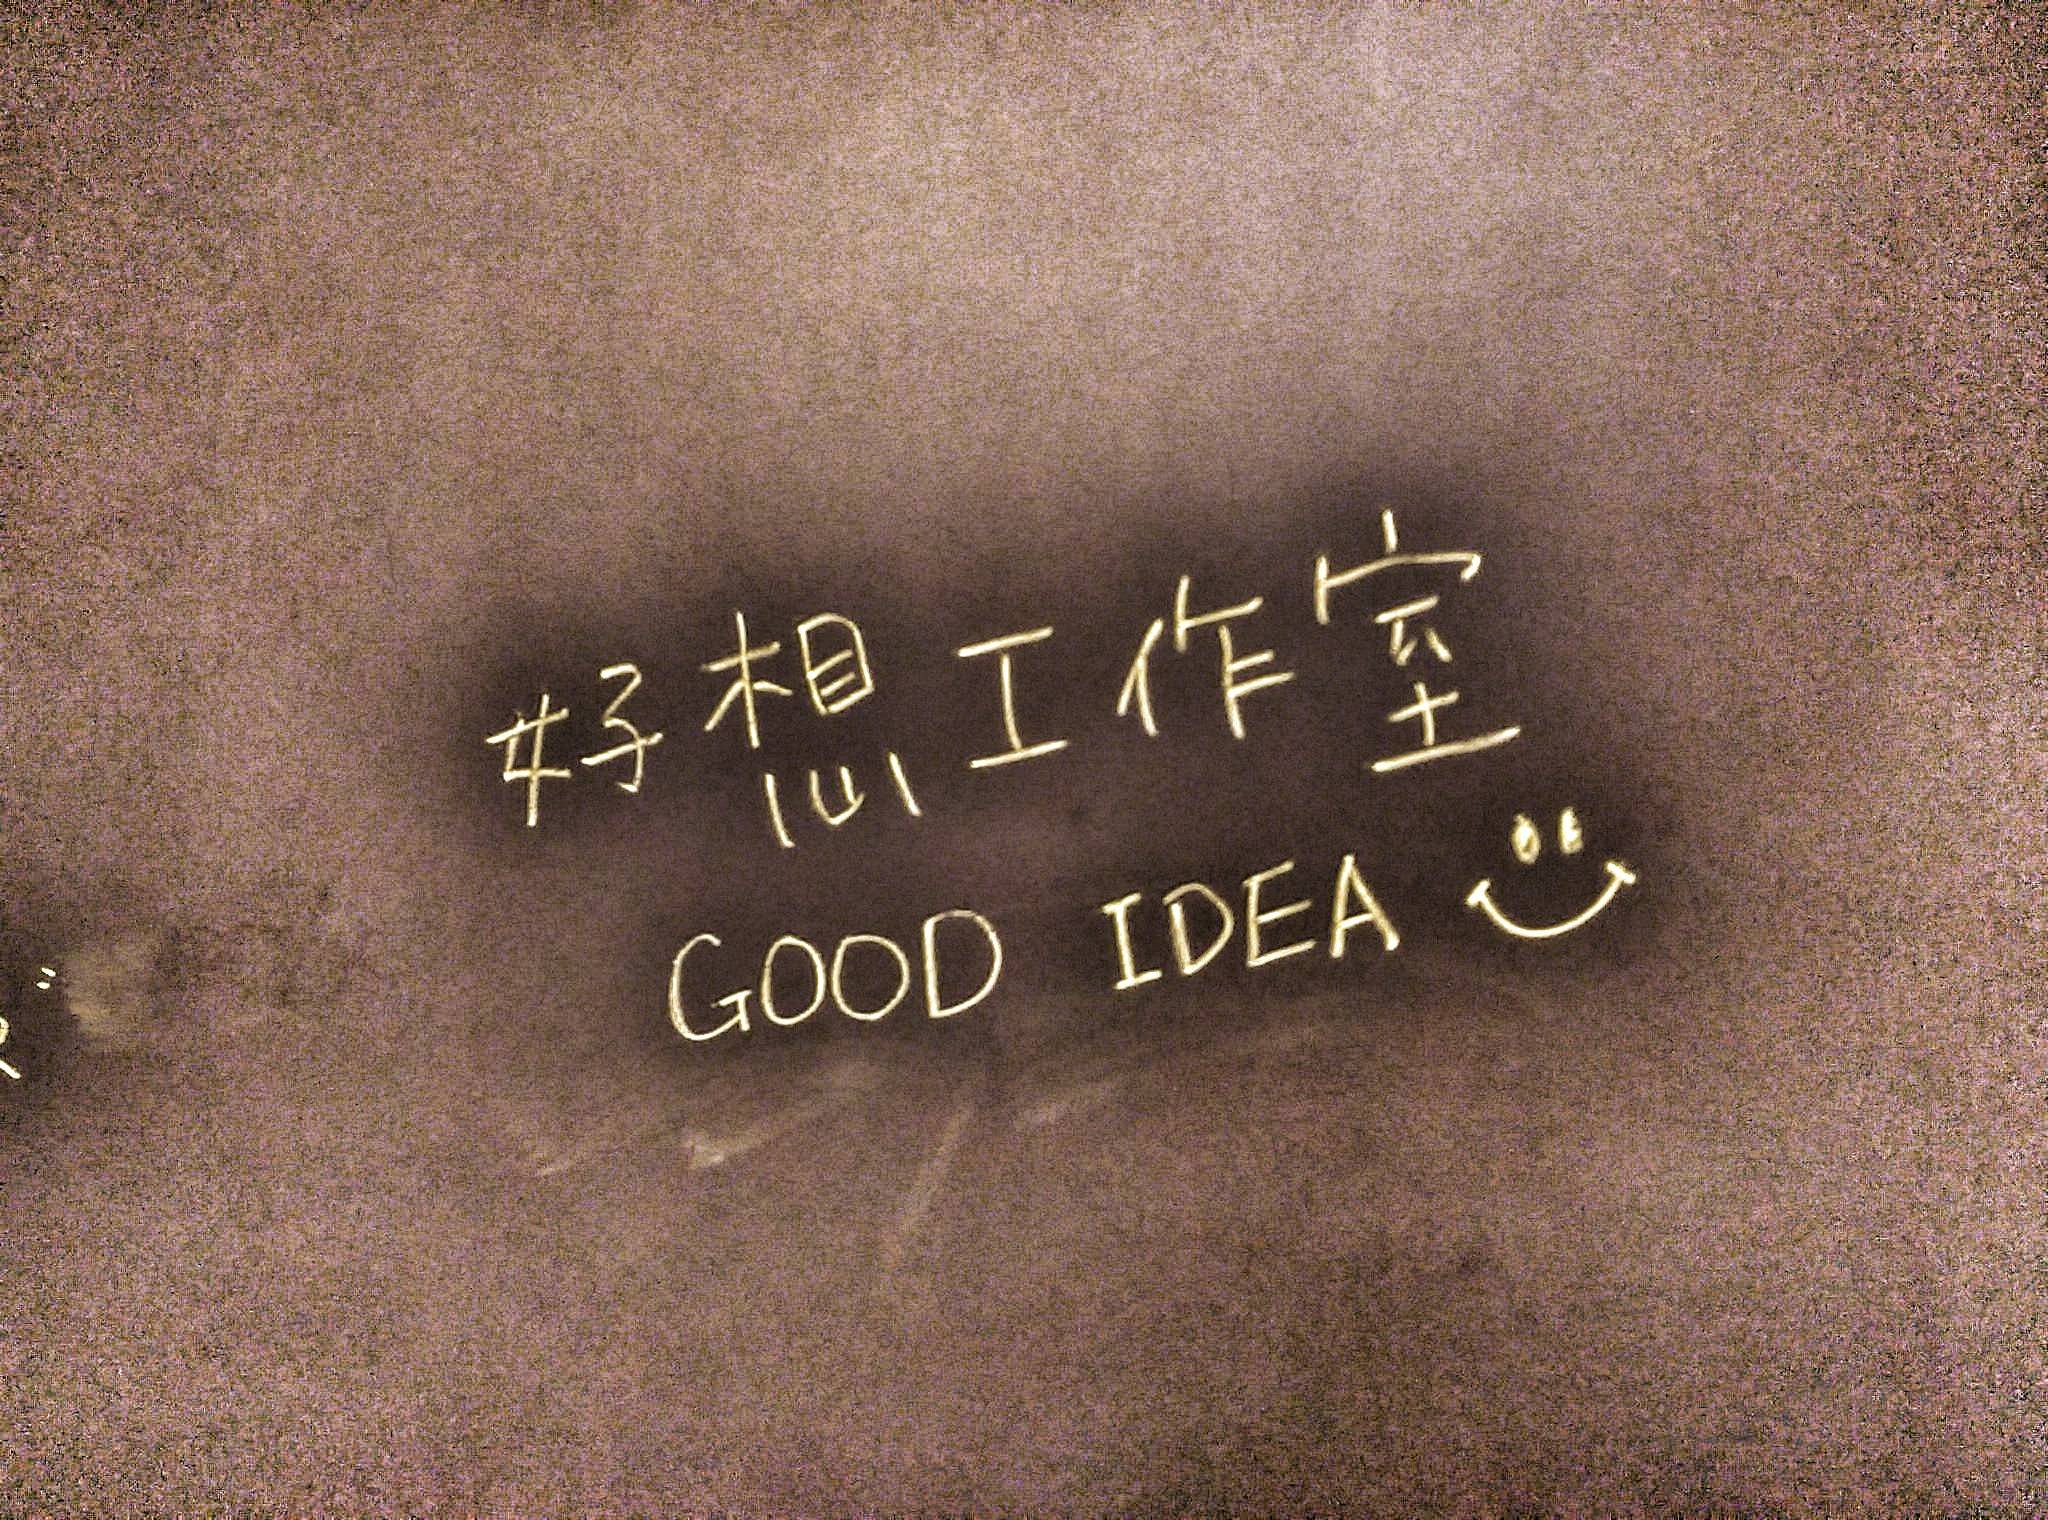 好想工作室
GOOD IDEA